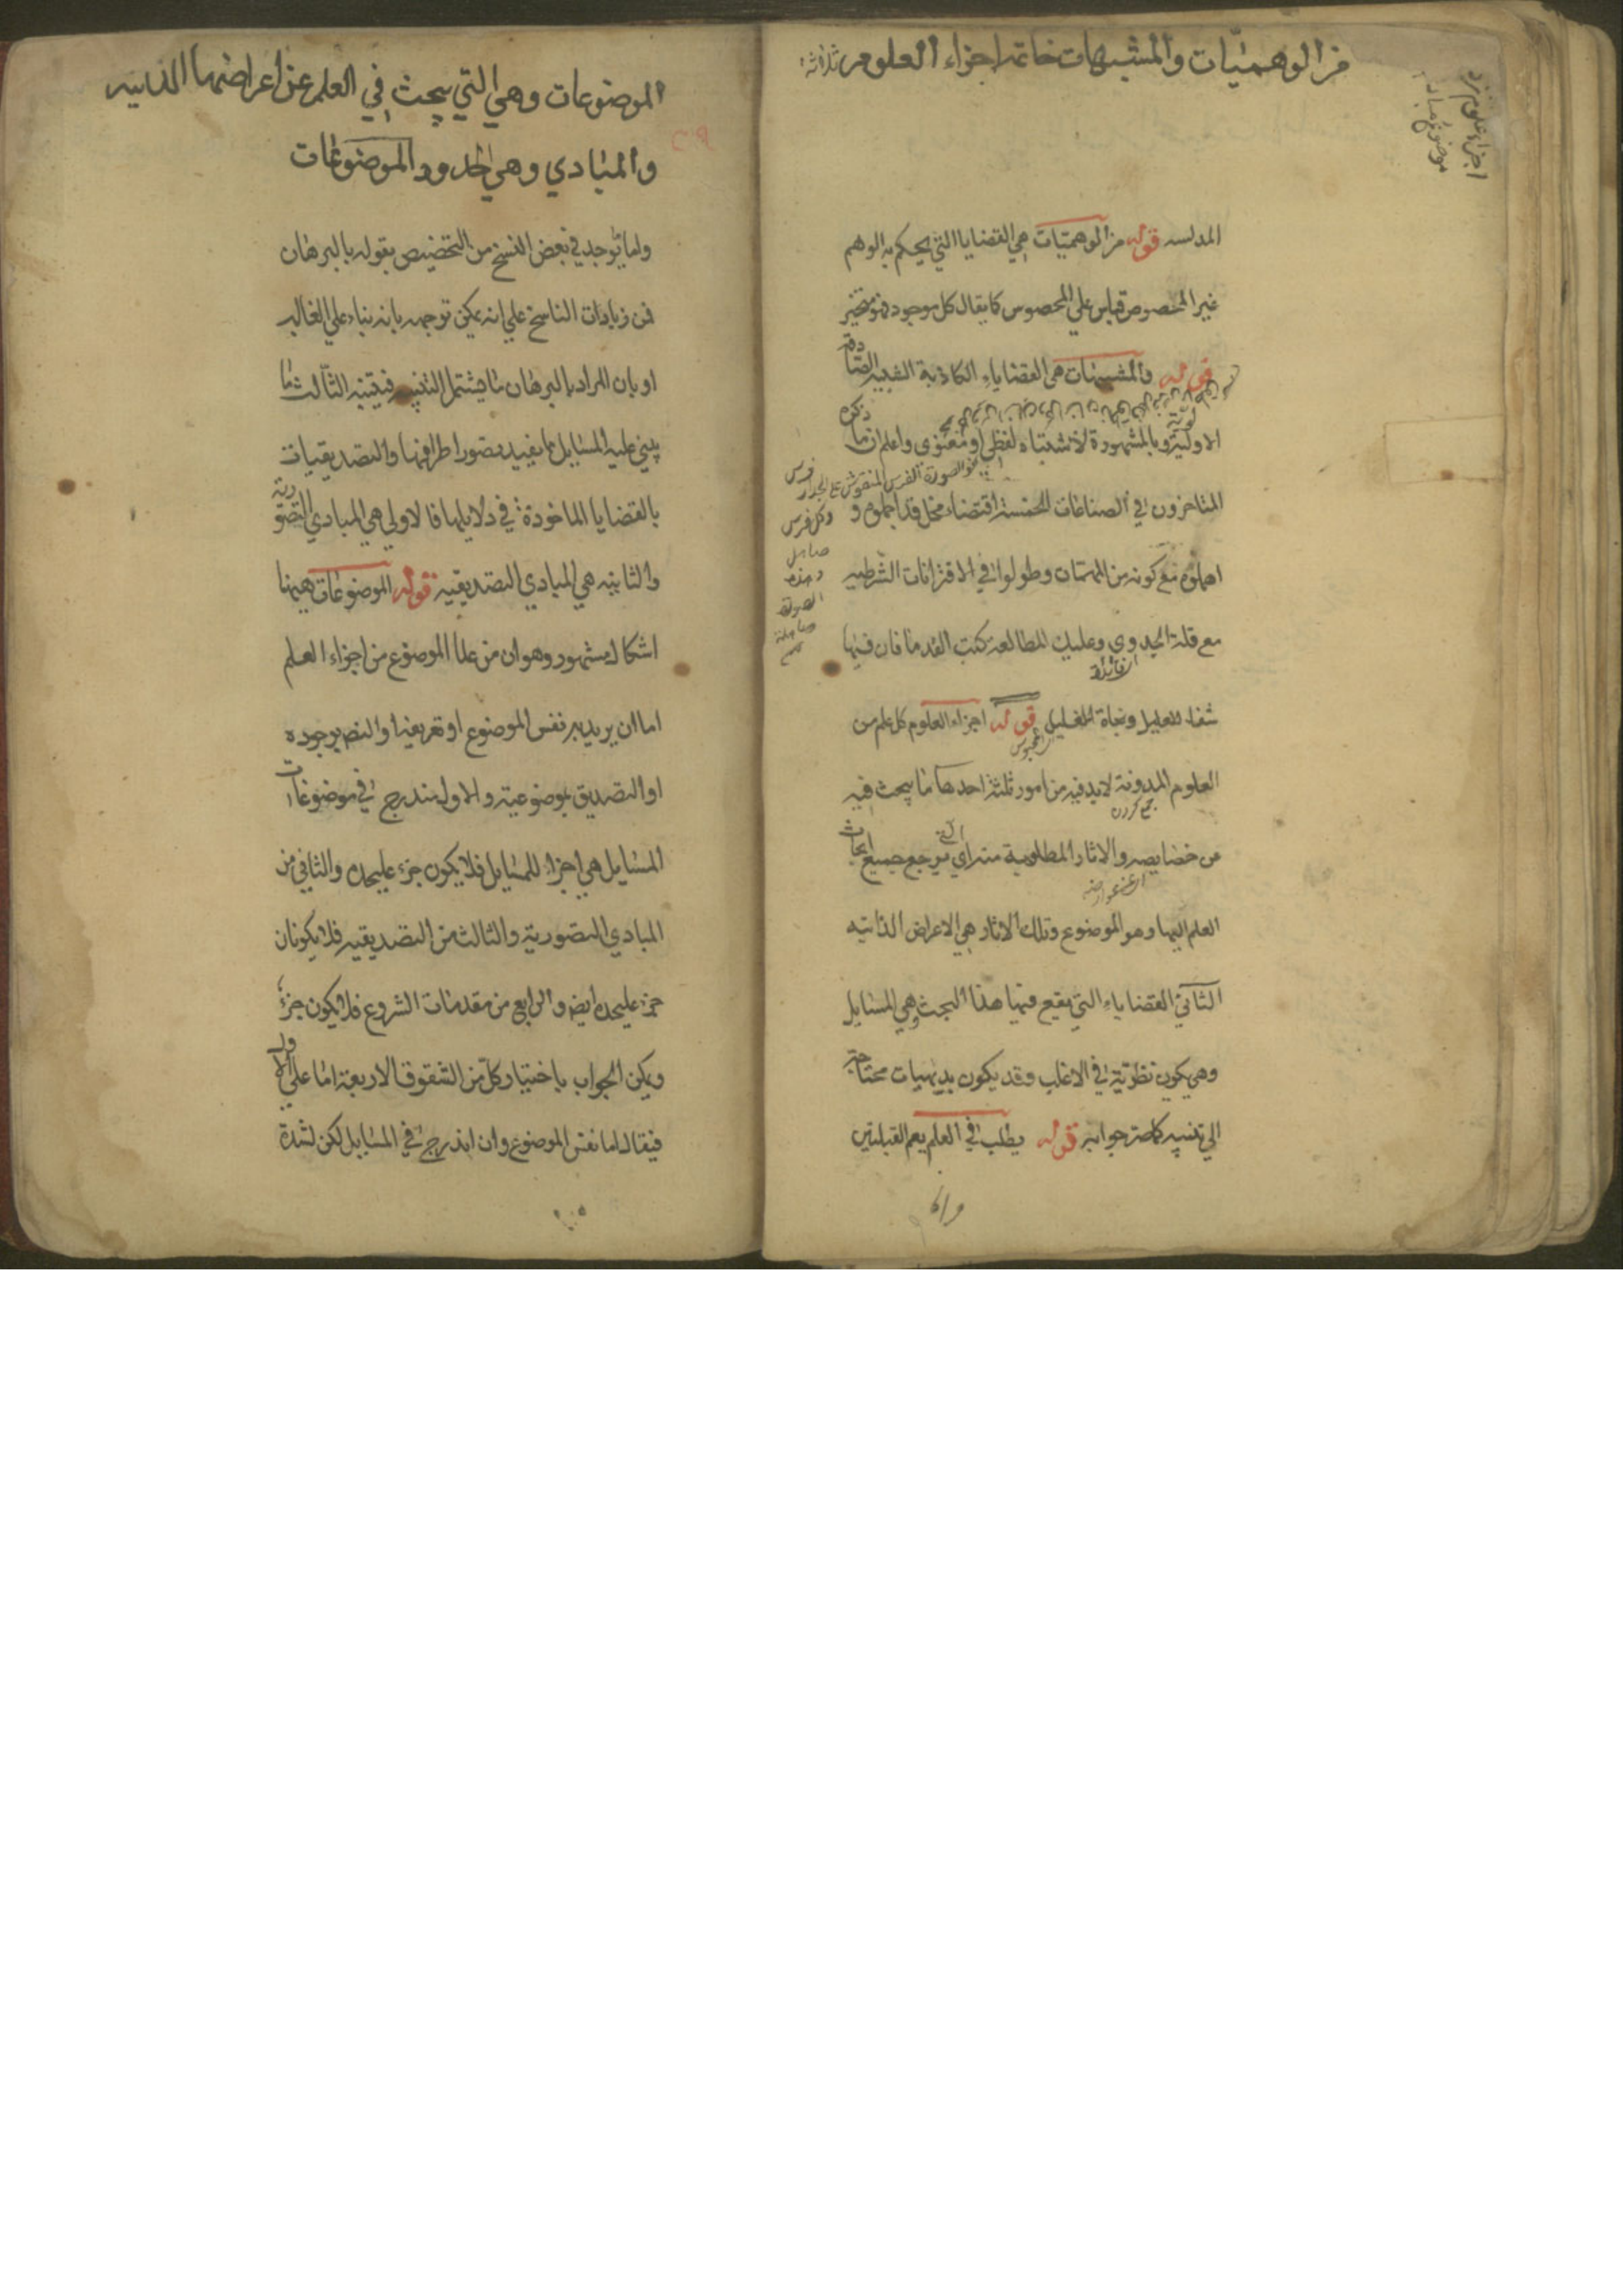 من الوهميات والمشبهات خاتمة اجزاء العلوم ثلاثة
اجزاء علوم نزد
موضوع مباد
المدلسه قوله من الوهميّات هي القضايا التي يحكم به الوهم
غير المحصوص قياس علي المحصوس كما يقال كل موجود فهو متحيز
قوله والمشبهات هي القضاياء الكاذبة الشبيه الصادقة
الاولية وبالمشهورة لاشتباه لفظي او معنوي واعلم ان ما ذكره
كصورة الفرس المنقوش علي الجدار فرس
المتاخرون في الصناعات الخمسة اقتضاء مخل قد اجملوه و
وكل فرس
صاهل
وهذه
الصورة
صاهلة
اهملوه مع كونه من المهمات وطولوا في الاقترانات الشرطيه
مع قلة الجدوي وعليك المطالعة كتب القدما فان فيها
اي فائدة
شفاء للعليل ونجاة للغليل قوله اجزاء العلوم كل علم من
العلوم المدونة لابد فيه من امور ثلثة احدها ما يبحث فيه
جمع كردن
عن خصايصه والاثار المطلوبة منه اي يرجع جميع ابحاث
اي عن عوارضه
العلم اليها وهو الموضوع وتلك الاثار هي الاعراض الذاتيه
الثاني القضاياء التي يقع فيها هذا البحث وهي المسايل
وهي يكون نظريّة في الاغلب وقد يكون بديهيات محتاجة
الي تنبيه كما صرحوا به قوله يطلب في العلم يعم القبيلتين
واما
الموضوعات وهي التي يبحث في العلم عن اعراضها الذاتيه
والمبادي وهي الحدود الموضوعات
واما يوجد في بعض النسخ من التخصيص بقوله بالبرهان
فمن زيادات الناسخ علي انه يمكن توجيهه بانه بناء علي الغالب
او بان المراد بالبرهان ما يشتمل التنبيه فيتنبه الثالث ما
يبني عليه المسايل مما يفيد تصور اطرافها والتصديقيات
بالقضايا الماخوذة في دلايلها فالاولي هي المبادي التصورية
والثانيه هي المبادي التصديقيه قوله الموضوعات ههنا
اشكال مشهور وهو ان من عد الموضوع من اجزاء العلم
اما ان يريد به نفس الموضوع او تعريفها والتصديق بوجوده
او التصديق بموضوعيته والاول مندرج في موضوعات
المسايل هي اجزاء للمسايل فلا يكون جزء عليحده والثاني من
المبادي التصورية والثالث من التصديقيه فلا يكونان
جزء عليحده ايضا والرابع من مقدمات الشروع فلا يكون جزءا
ويمكن الجواب باختيار كل من الشقوق الاربعة اما علي الاول
فيقال اما نفس الموضوع وان اندرج في المسايل لكن لشدة